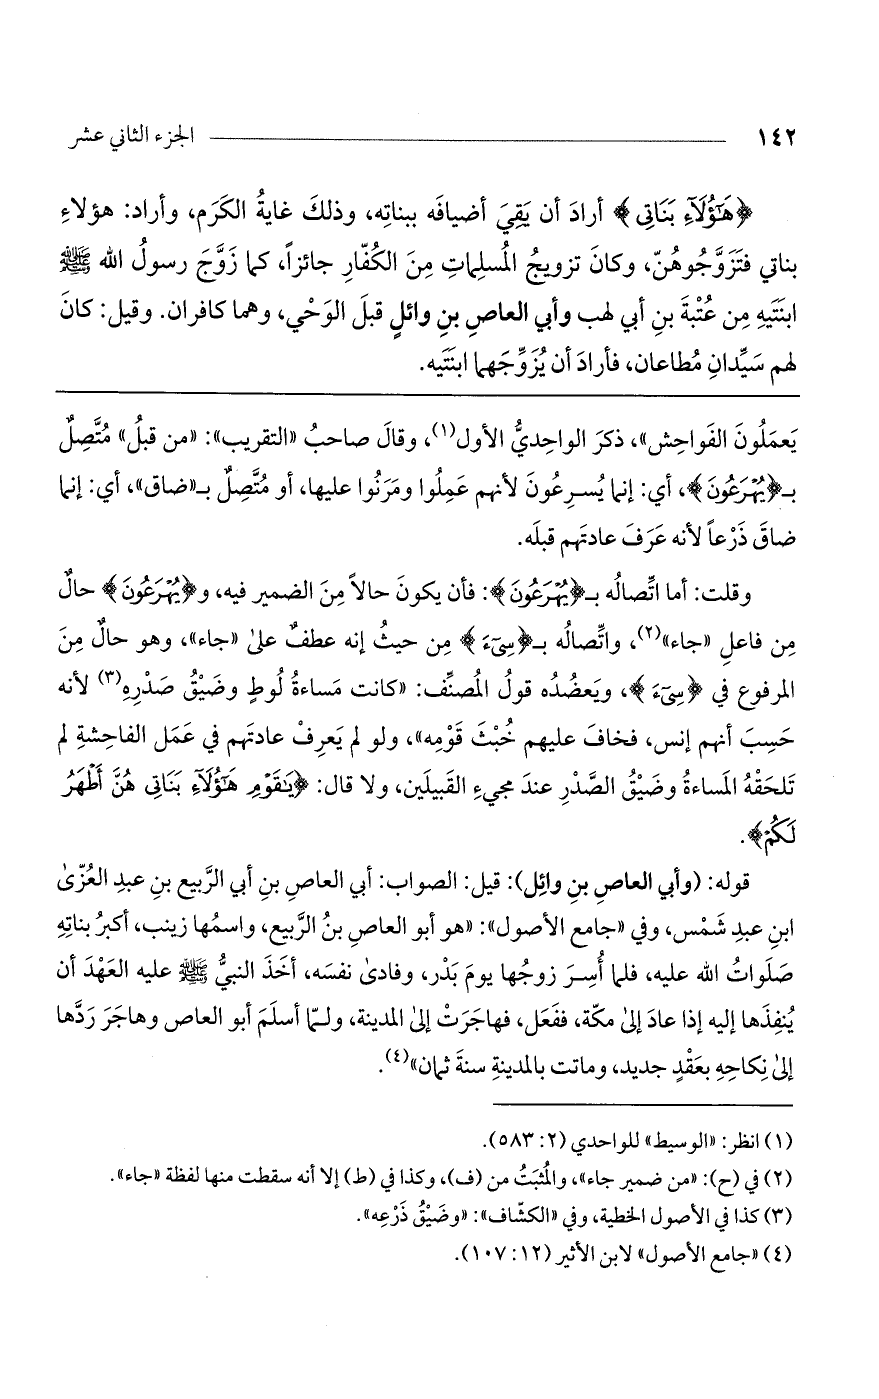 ١٤٢ الجزء الثاني عشر
﴿هَٰٓؤُلَآءِ بَنَاتِى﴾ أرادَ أن يَقِيَ أضيافَه ببناتِه، وذلكَ غايةُ الكَرَم، وأراد: هؤلاءِ
بناتي فتَزَوَّجُوهُنّ، وكانَ تزويجُ المُسلِماتِ مِنَ الكُفّارِ جائزاً، كما زَوَّجَ رسولُ الله ﷺ
ابنَتَيهِ مِن عُتْبةَ بنِ أبي لهب وأبي العاصِ بنِ وائلٍ قبلَ الوَحْي، وهما كافران. وقيل: كانَ
لهم سَيِّدانِ مُطاعان، فأرادَ أن يُزَوِّجَهما ابنَتَيه.
يَعمَلُونَ الفَواحِش»، ذكرَ الواحِديُّ الأول(١)، وقالَ صاحبُ «التقريب»: «من قبلُ» مُتَّصِلٌ
بـ﴿يُهْرَعُونَ﴾، أي: إنما يُسرِعُونَ لأنهم عَمِلُوا ومَرَنُوا عليها، أو مُتَّصِلٌ بـ«ضاق»، أي: إنما
ضاقَ ذَرْعاً لأنه عَرَفَ عادتَهم قبلَه.
وقلت: أما اتِّصالُه بـ﴿يُهْرَعُونَ﴾: فأن يكونَ حالاً مِنَ الضمير فيه، و﴿يُهْرَعُونَ﴾ حالٌ
مِن فاعلِ «جاء»(٢)، واتِّصالُه بـ﴿سِىٓءَ﴾ مِن حيثُ إنه عطفٌ على «جاء»، وهو حالٌ مِنَ
المرفوع في ﴿سِىٓءَ﴾، ويَعضُدُه قولُ المُصنِّف: «كانت مَساءةُ لُوطٍ وضَيْقُ صَدْرِهِ(٣) لأنه
حَسِبَ أنهم إنس، فخافَ عليهم خُبْثَ قَوْمِه»، ولو لم يَعرِفْ عادتَهم في عَمَل الفاحِشةِ لم
تَلحَقْهُ المَساءةُ وضَيْقُ الصَّدْرِ عندَ مجيءِ القَبيلَين، ولا قال: ﴿يَٰقَوْمِ هَٰٓؤُلَآءِ بَنَاتِى هُنَّ أَطْهَرُ
لَكُمْ﴾.
قوله: (وأبي العاصِ بنِ وائِل): قيل: الصواب: أبي العاصِ بنِ أبي الرَّبيع بنِ عبدِ العُزّى
ابنِ عبدِ شَمْس، وفي «جامع الأصول»: «هو أبو العاص بنُ الرَّبيع، واسمُها زينب، أكبرُ بناتِهِ
صَلَواتُ الله عليه، فلما أُسِرَ زوجُها يومَ بَدْر، وفادى نفسَه، أخَذَ النبيُّ ﷺ عليه العَهْدَ أن
يُنفِذَها إليه إذا عادَ إلى مكّة، ففَعَل، فهاجَرَتْ إلى المدينة، ولـمّا أسلَمَ أبو العاص وهاجَرَ رَدَّها
إلى نِكاحِهِ بعَقْدٍ جديد، وماتت بالمدينةِ سنةَ ثمان»(٤).
(١) انظر: «الوسيط» للواحدي (٢: ٥٨٣).
(٢) في (ح): «من ضمير جاء»، والمُثبَتُ من (ف)، وكذا في (ط) إلا أنه سقطت منها لفظة «جاء».
(٣) كذا في الأصول الخطية، وفي «الكشّاف»: «وضَيْقُ ذَرْعِه».
(٤) «جامع الأصول» لابن الأثير (١٢: ١٠٧).